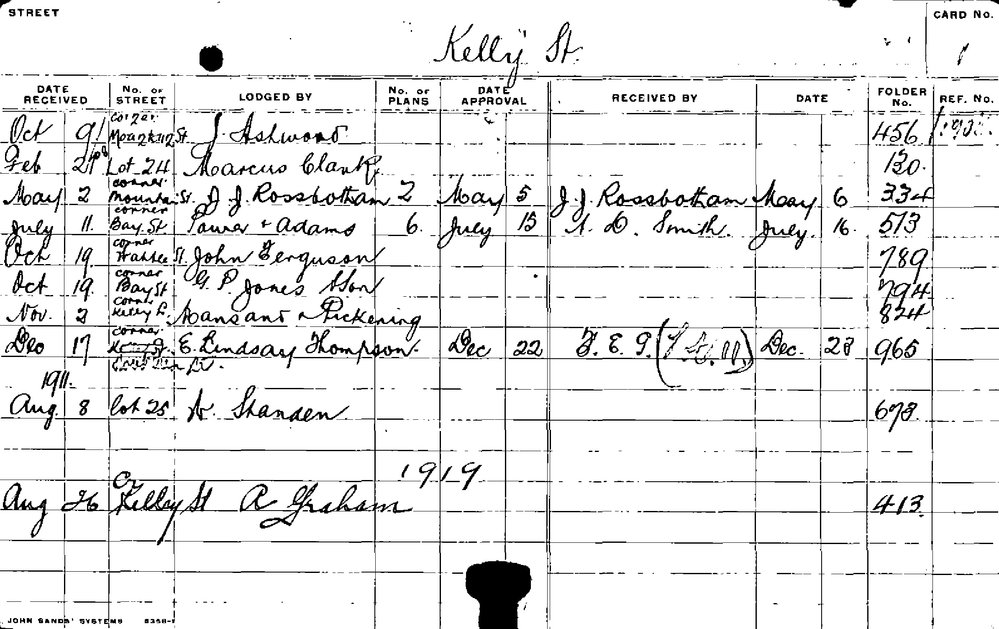 STREET Kelly St. CARD No. 1
DATE RECEIVED No. OF STREET LODGED BY No. OF PLANS DATE APPROVAL RECEIVED BY DATE FOLDER No. REF. No.
Oct 9 corner St. J. Ashwood 456
Feb 21 Lot 24 Marcus Clark 130.
May 2 corner Mountain St. J. J. Rossbotham 2 May 5 J. J. Rossbotham May 6 334
July 11. corner Bay St Power & Adams 6. July 15 Smith. July. 16. 513
Oct 19. corner St. John Ferguson 789
Oct 19. corner Bay St G. P. Jones & Son 794
Nov. 2 corner Kelly & Pickering 824
Dec 17 corner E. Lindsay Thompson. Dec 22 Dec. 28 965
1911.
Aug 8 lot 25 Standen 678.
1919
Aug 26 Cr Kelley St A Graham 413.
JOHN SANDS' SYSTEMS